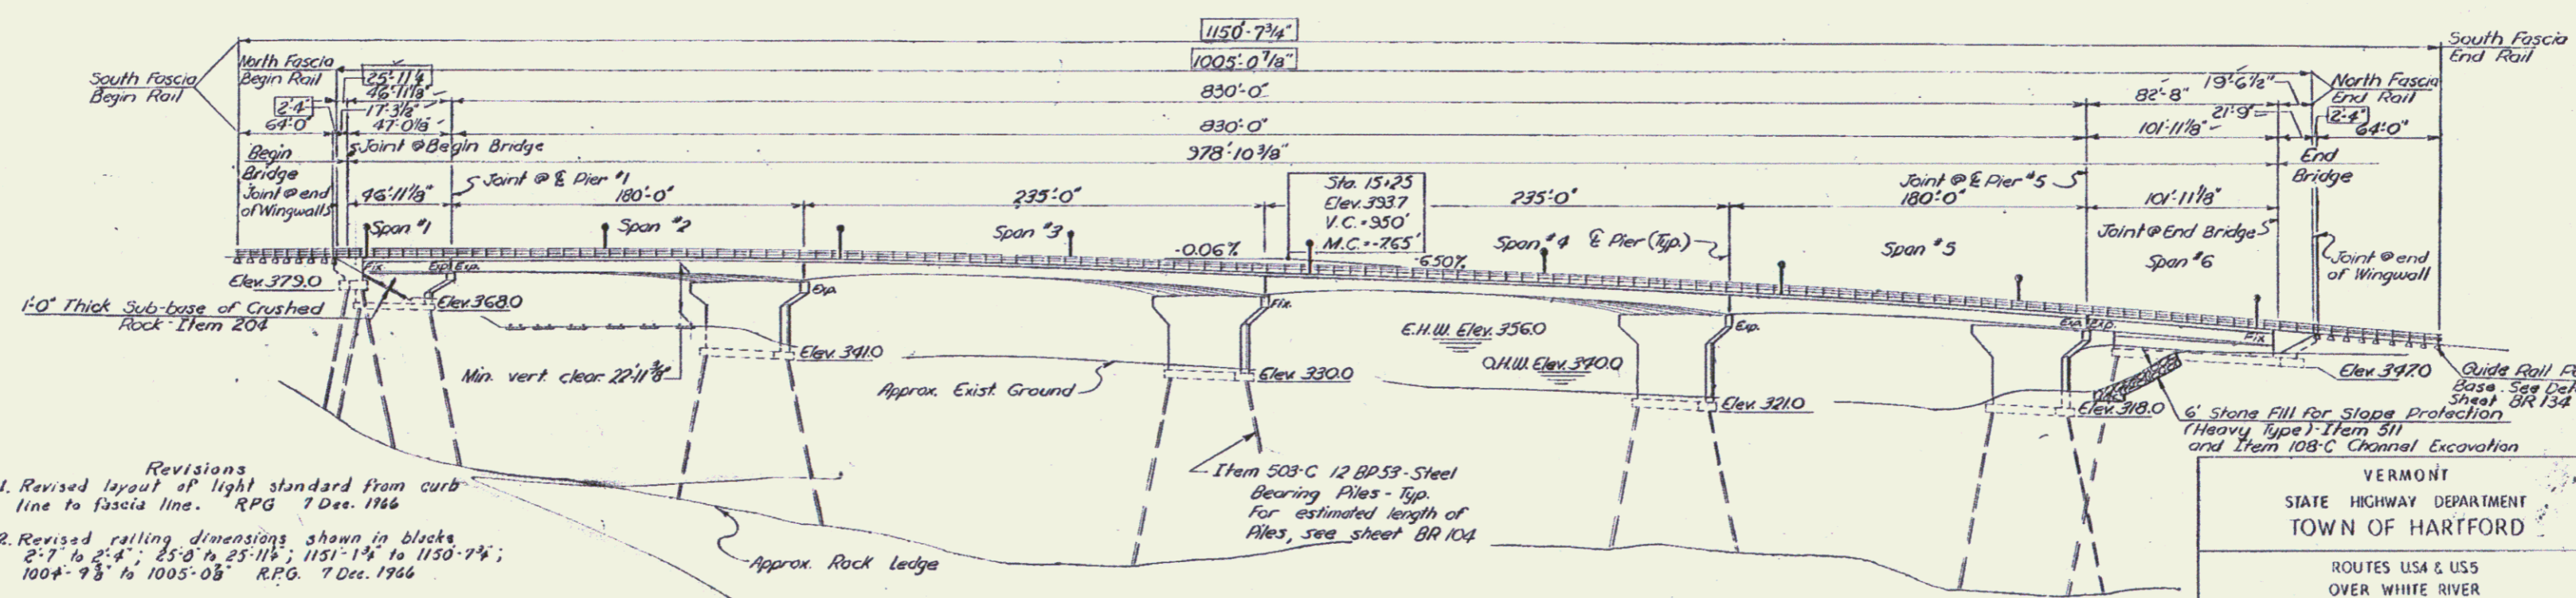 1150'-7¾"
1005'-0⅞"
South Fascia
Begin Rail
North Fascia
Begin Rail
25'-11¼
46'-11⅛"
830'-0"
82'-8"
19'-6½"
North Fascia
End Rail
South Fascia
End Rail
2'-4"
64'-0"
17'-3½"
47'-0⅛"
830'-0"
101'-11⅛"
21'-9"
2'-4"
64'-0"
Begin
Bridge
Joint @ Begin Bridge
978'-10⅜"
End
Bridge
Joint @ end
of Wingwalls
46'-11⅛"
Joint @ ℄ Pier #1
180'-0"
235'-0"
Sta. 15+25
Elev. 393.7
V.C. = 950'
M.C. = -7.65'
235'-0"
Joint @ ℄ Pier #5
180'-0"
101'-11⅛"
Span #1
Span #2
Span #3
-0.06%
-6.50%
Span #4
℄ Pier (Typ.)
Span #5
Joint @ End Bridge
Span #6
Joint @ end
of Wingwall
Elev. 379.0
Fix.
Exp.
Exp.
Elev. 368.0
1'-0" Thick Sub-base of Crushed
Rock - Item 204
Exp.
Elev. 341.0
Min. vert. clear. 22'-11⅜"
Approx. Exist. Ground
Fix.
Elev. 330.0
E.H.W. Elev. 356.0
O.H.W. Elev. 340.0
Exp.
Elev. 321.0
Exp.
Exp.
Fix
Elev. 318.0
Elev. 347.0
Guide Rail
Base. See
Sheet BR 134
6' Stone Fill for Slope Protection
(Heavy Type) - Item 511
and Item 108-C Channel Excavation
Item 503-C 12 BP 53 - Steel
Bearing Piles - Typ.
For estimated length of
Piles, see sheet BR 104
Approx. Rock Ledge
Revisions
1. Revised layout of light standard from curb
line to fascia line. RPG 7 Dec. 1966
2. Revised railing dimensions shown in blocks
2'-7" to 2'-4"; 25'-8" to 25'-11¼"; 1151'-1¾" to 1150'-7¾";
1004'-9⅜" to 1005'-0⅞" R.P.G. 7 Dec. 1966
VERMONT
STATE HIGHWAY DEPARTMENT
TOWN OF HARTFORD
ROUTES US4 & US5
OVER WHITE RIVER